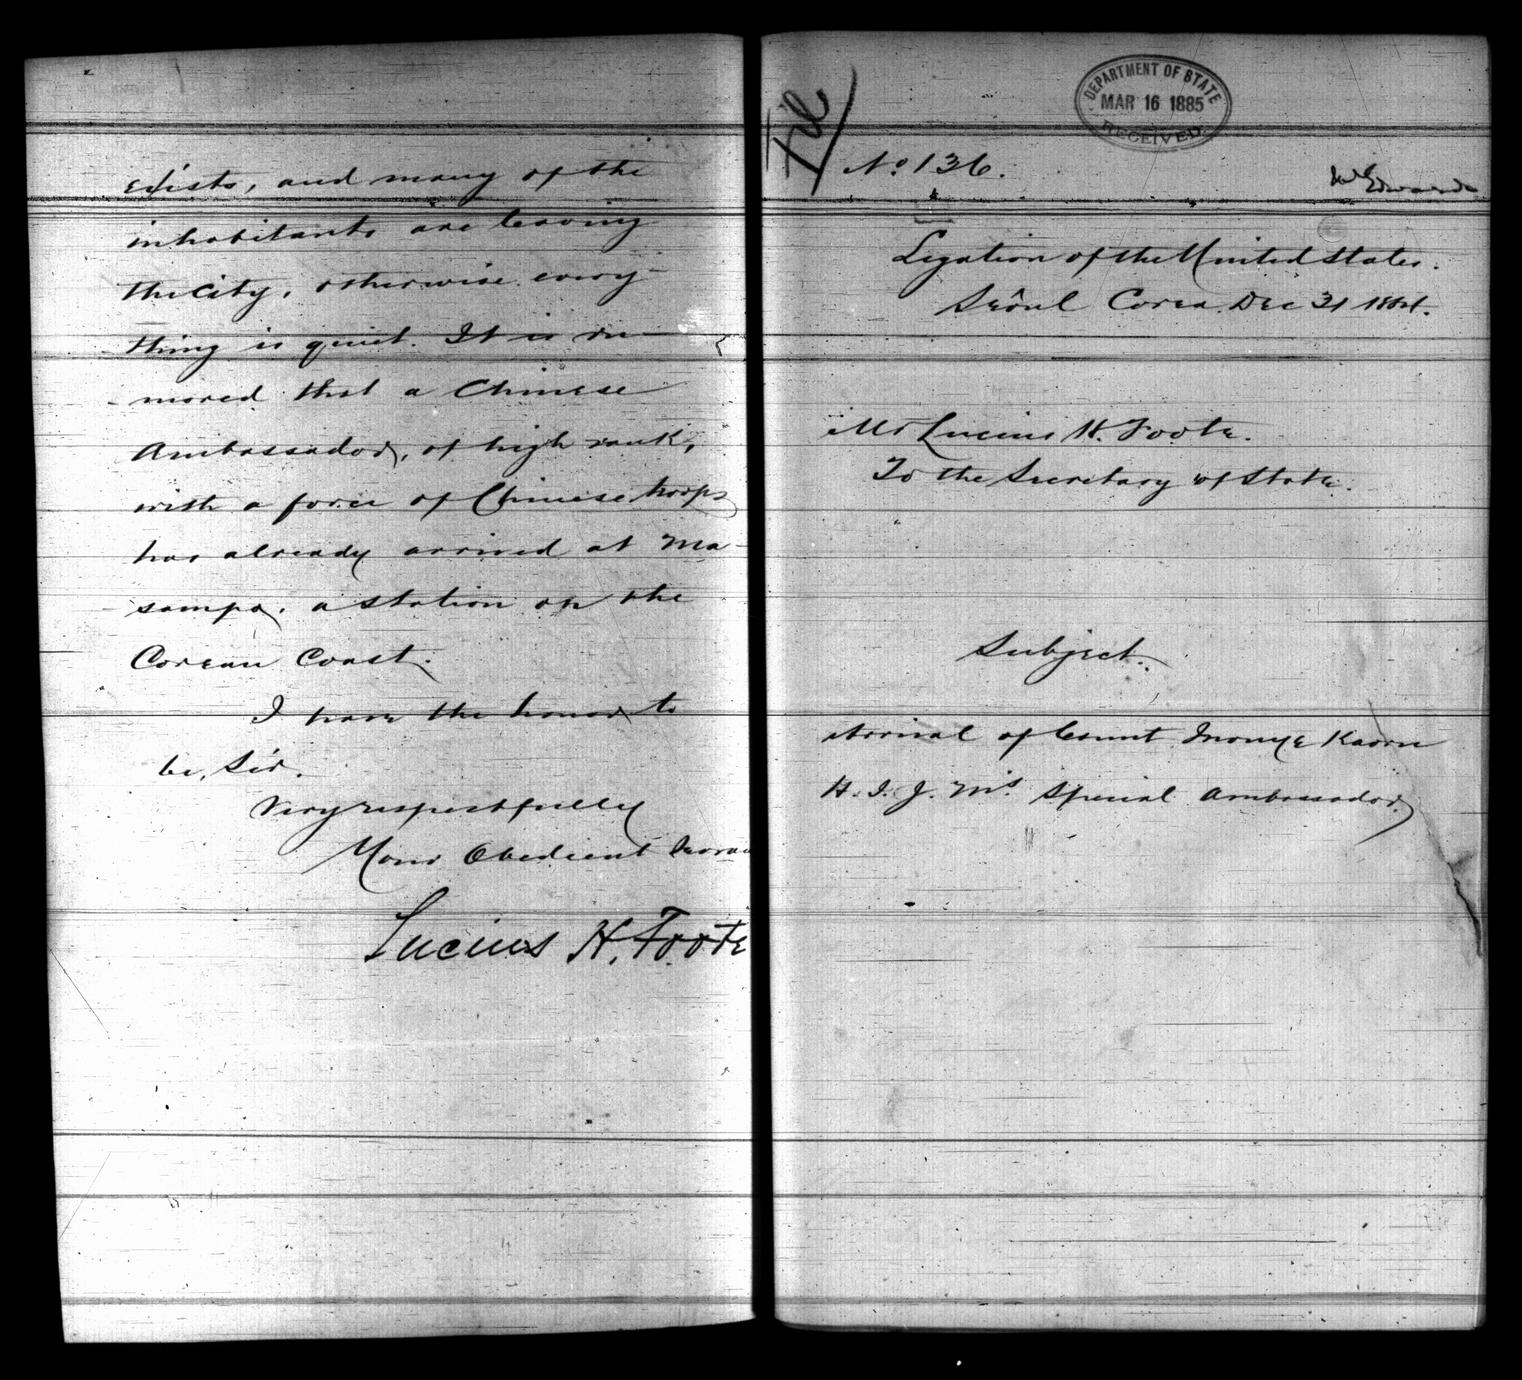 exists, and many of the
inhabitants are leaving
the city, otherwise every-
thing is quiet. It is ru-
mored that a Chinese
Ambassador, of high rank,
with a force of Chinese troops
has already arrived at Ma-
sampo, a station on the
Corean Coast.
I have the honor to
be, Sir.
Very respectfully
Your Obedient Servan
Lucius H. Foote
DEPARTMENT OF STATE
MAR 16 1885
RECEIVED
File
No. 136.
Mr Edwards
Legation of the United States.
Seôul Corea. Dec 31 1884.
Mr Lucius H. Foote.
To the Secretary of State.
Subject.
Arrival of Count Inouye Kaoru
H. I. J. M's Special Ambassador.